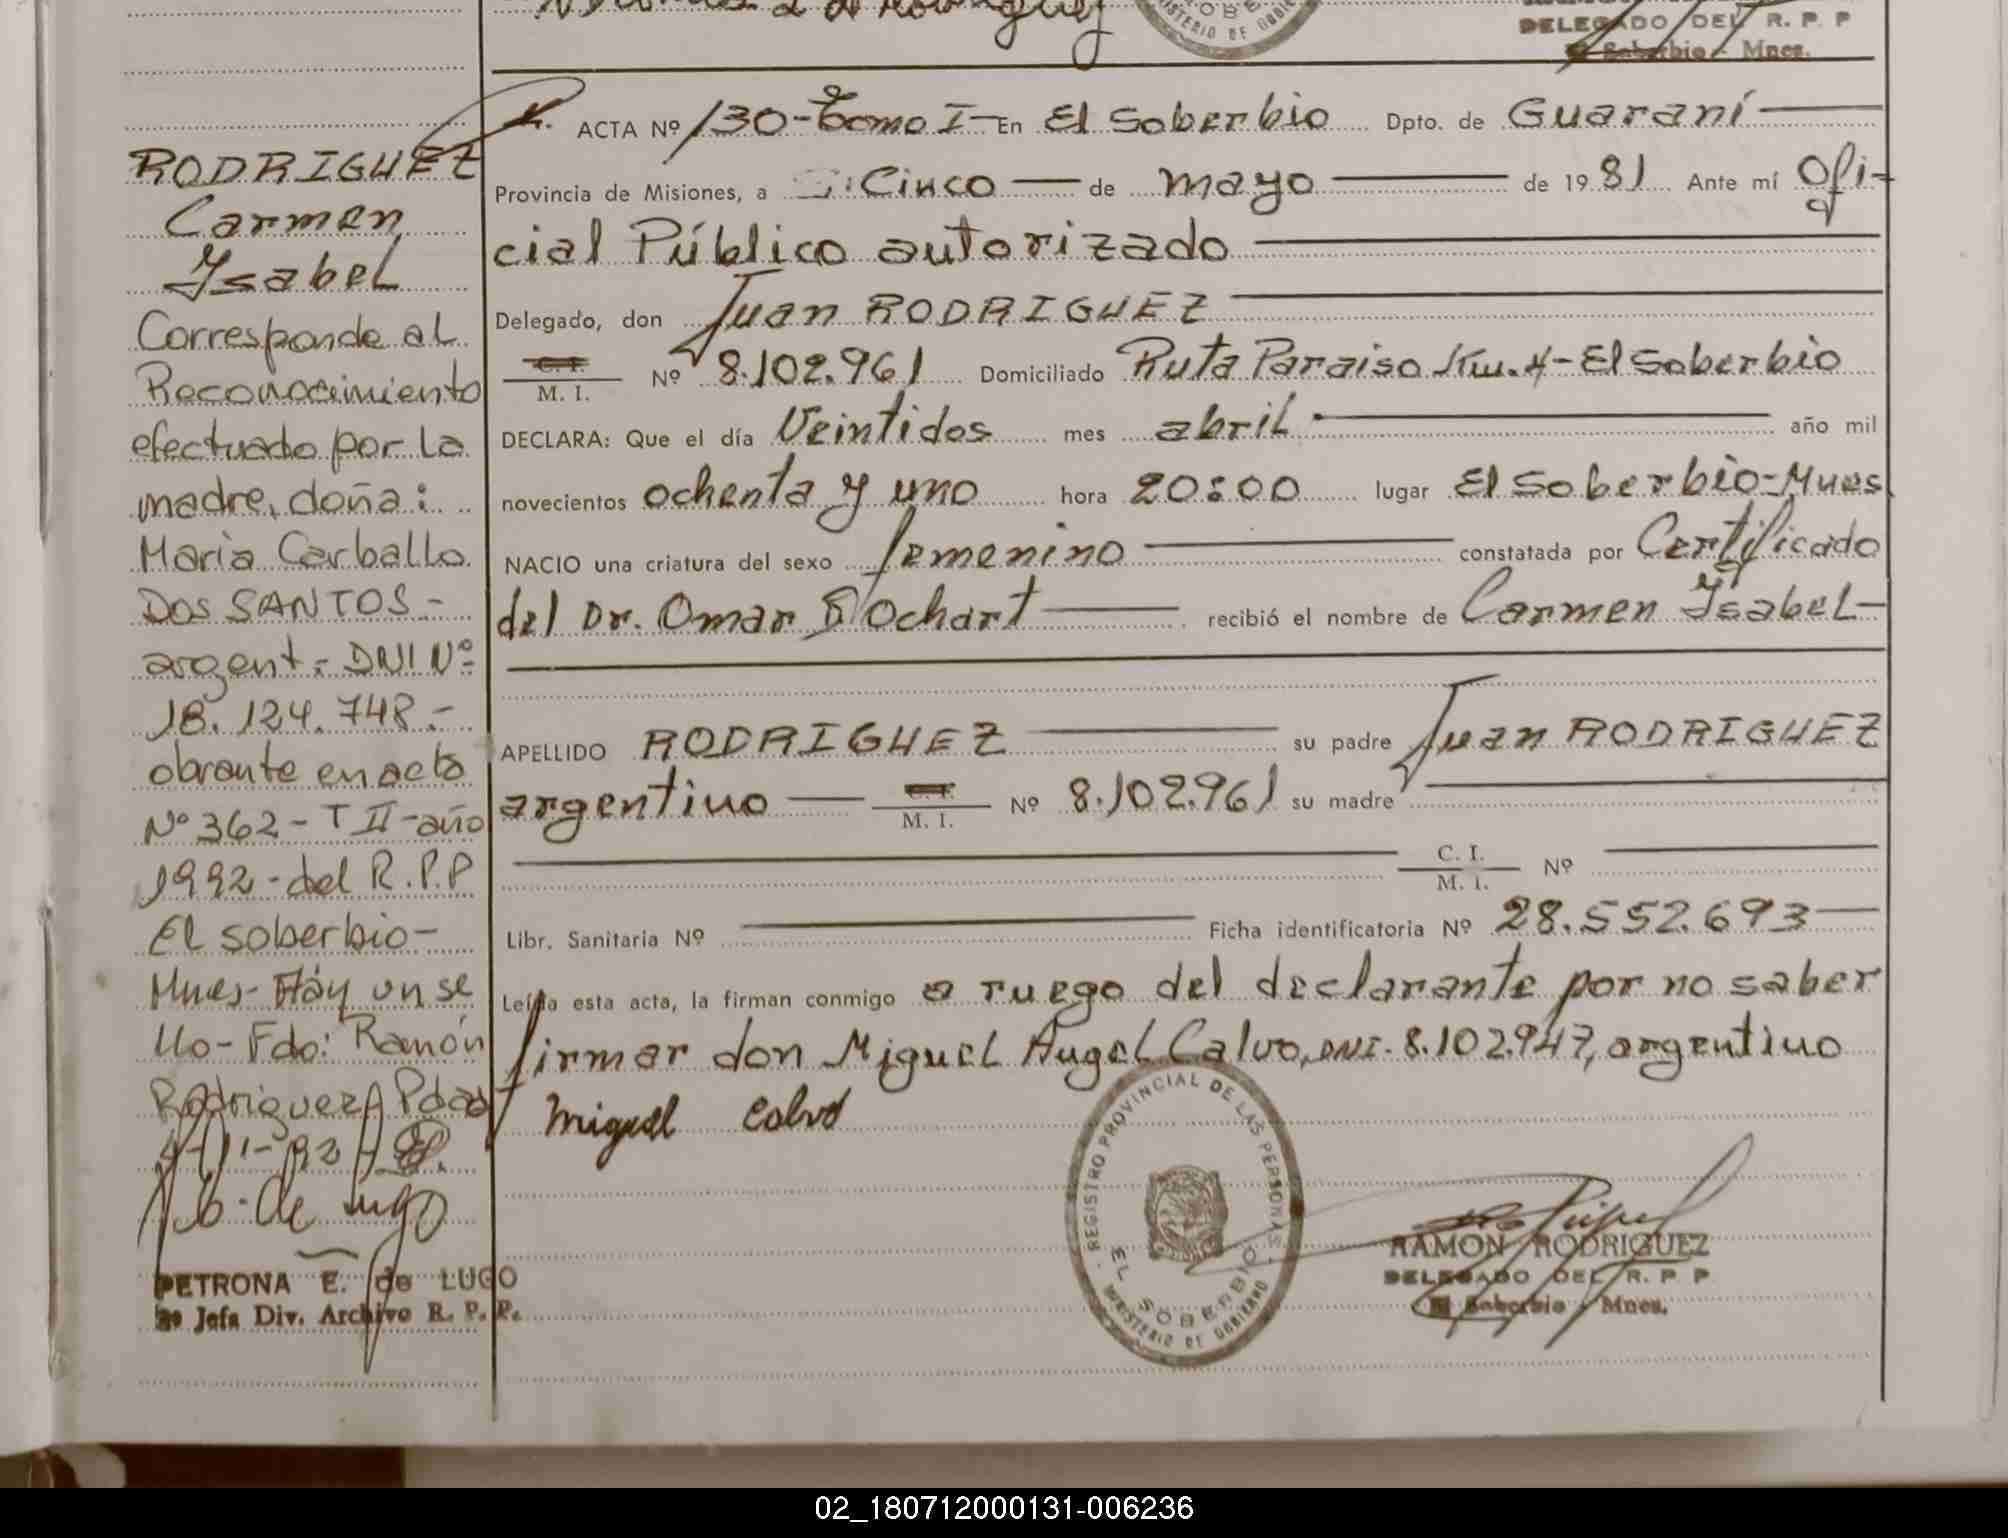 DELEGADO DEL R. P. P
El Soberbio - Mnes.
RODRIGUEZ
Carmen
Ysabel
Corresponde al
Reconocimiento
efectuado por la
madre, doña:
Maria Carballo
Dos SANTOS -
argent.- DNI Nº
18.124.748.-
obrante en acta
Nº 362 - T II - año
1992 - del R.P.P
El soberbio -
Mnes - Háy un se
llo - Fdo: Ramón
Rodriguez Pdas
PETRONA E. de LUGO
2º Jefa Div. Archivo R. P. P.
ACTA Nº 130 - Tomo I - En El Soberbio Dpto. de Guaraní
Provincia de Misiones, a Cinco de mayo de 1981 Ante mí Ofi-
cial Público autorizado
Delegado, don Juan RODRIGUEZ
C. I.
M. I. Nº 8.102.961 Domiciliado Ruta Paraiso Km. 4 - El Soberbio
DECLARA: Que el día Veintidos mes abril año mil
novecientos ochenta y uno hora 20:00 lugar El Soberbio - Mnes
NACIO una criatura del sexo femenino constatada por Certificado
del Dr. Omar D Ochart recibió el nombre de Carmen Ysabel -
APELLIDO RODRIGUEZ su padre Juan RODRIGUEZ
argentino C. I.
M. I. Nº 8.102.961 su madre
C. I.
M. I. Nº
Libr. Sanitaria Nº Ficha identificatoria Nº 28.552.693
Leída esta acta, la firman conmigo a ruego del declarante por no saber
firmar don Miguel Angel Calvo, DNI. 8.102.947, argentino
Miguel Calvo
REGISTRO PROVINCIAL DE LAS PERSONAS
EL SOBERBIO
MINISTERIO DE GOBIERNO
RAMON RODRIGUEZ
DELEGADO DEL R. P. P
El Soberbio - Mnes.
02_180712000131-006236